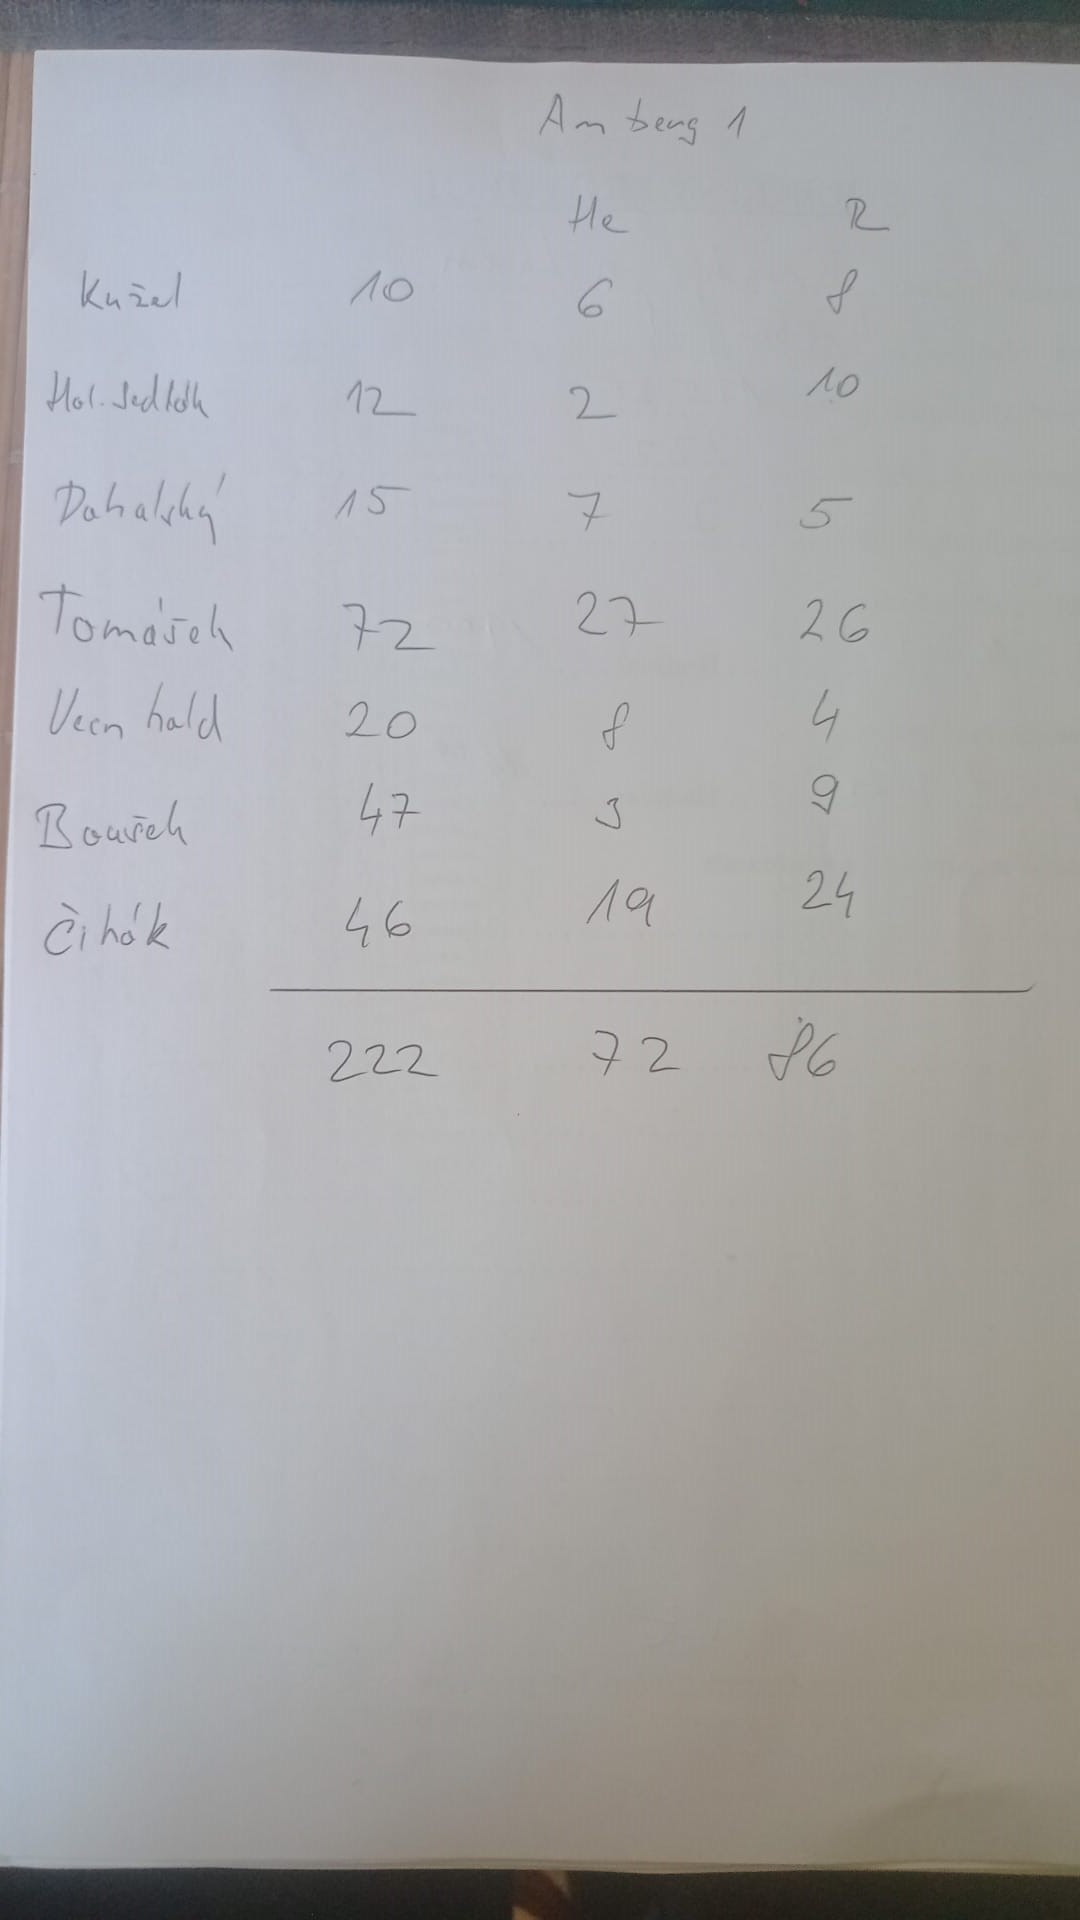 Amberg 1
He R
Kužel 10 6 8
Hol. Sedlák 12 2 10
Dohalský 15 7 5
Tomášek 72 27 26
Vern hald 20 8 4
Boušek 47 3 9
Čihák 46 19 24
222 72 86